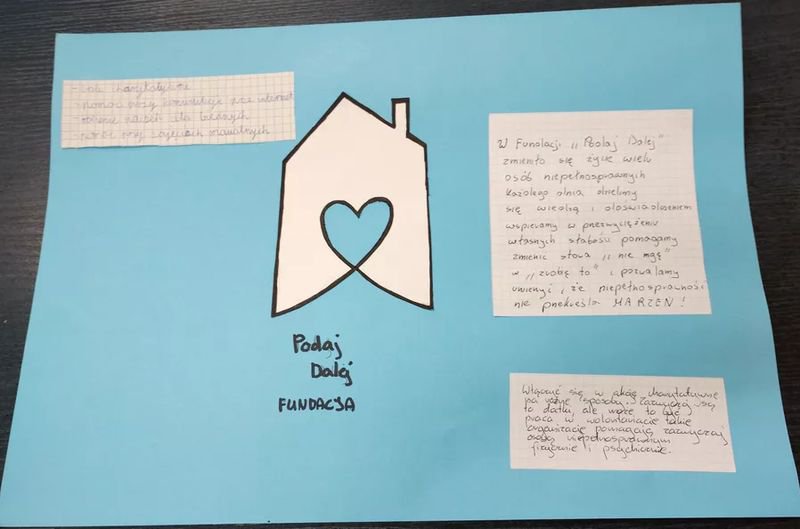 - cele charytatywne
- pomoc przy
- zajęciach manualnych
W Fundacji „Podaj Dalej”
zmieniło się życie wielu
osób niepełnosprawnych
każdego dnia dzielimy
się wiedzą i doświadczeniem
wspieramy w przezwyciężeniu
własnych słabości pomagamy
zmienić słowa „nie mgę”
w „zrobię to” i pozwalamy
uwierzyć, że niepełnosprawność
nie przekreśla MARZEŃ!
Podaj
Dalej
FUNDACJA
Włączyć się w akcję charytatywne
na różne sposoby. Zazwyczaj są
to datki, ale może to być
praca w wolontariacie takie
organizacje pomagają zazwyczaj
osobą niepełnosprawnym
fizycznie i psychicznie.